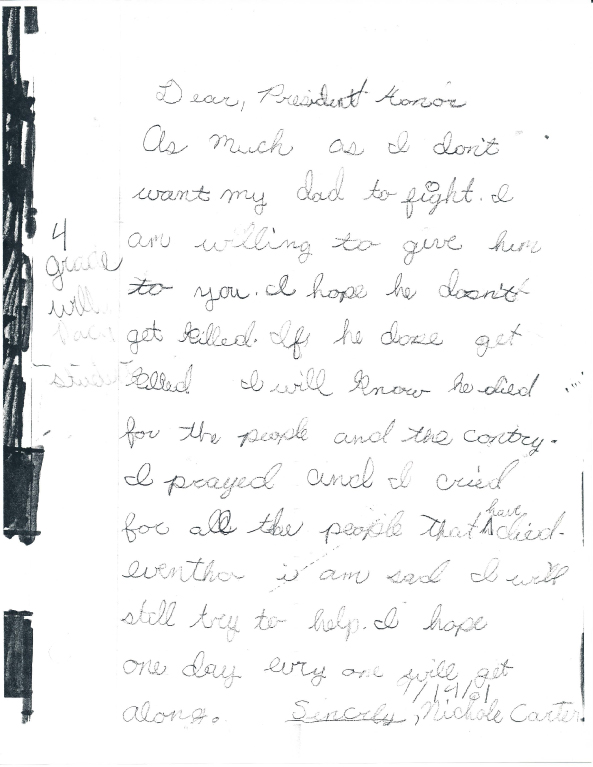 Dear, President Honor
As much as I don't
want my dad to fight. I
am willing to give him
to you. I hope he dosn't
get killed. If he dose get
killed I will know he died
for the people and the contry.
I prayed and I cried
for all the people that have died.
eventho i am sad I will
still try to help. I hope
one day evry one will get
along. Sincrly, Nichole Carter
4
grade
will
9/19/01